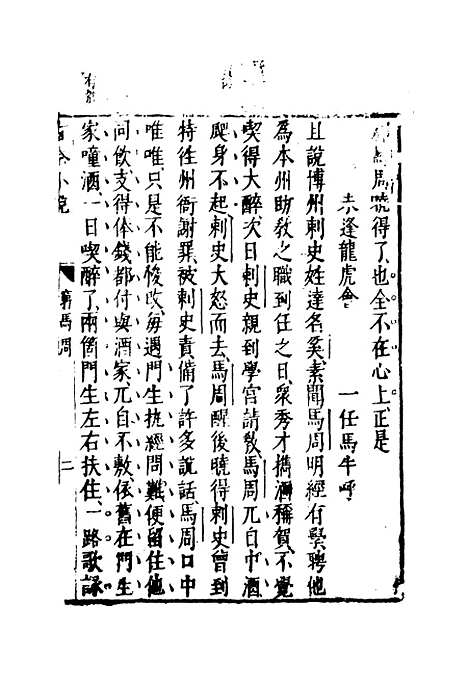 馬周曉得了也全不在心上正是
未逢龍虎會　一任馬牛呼
且說博州刺史姓達名奚素聞馬周明經有學聘他
爲本州助教之職到任之日衆秀才攜酒稱賀不覺
喫得大醉次日刺史親到學宮請教馬周兀自中酒
爬身不起刺史大怒而去馬周醒後曉得刺史曾到
特往州衙謝罪被刺史責備了許多說話馬周口中
唯唯只是不能悛改每遇門生執經問難便留住他
同飲支得俸錢都付與酒家兀自不敷依舊在門生
家噇酒一日喫醉了兩箇門生左右扶住一路歌詠
古今小說
窮馬周
二